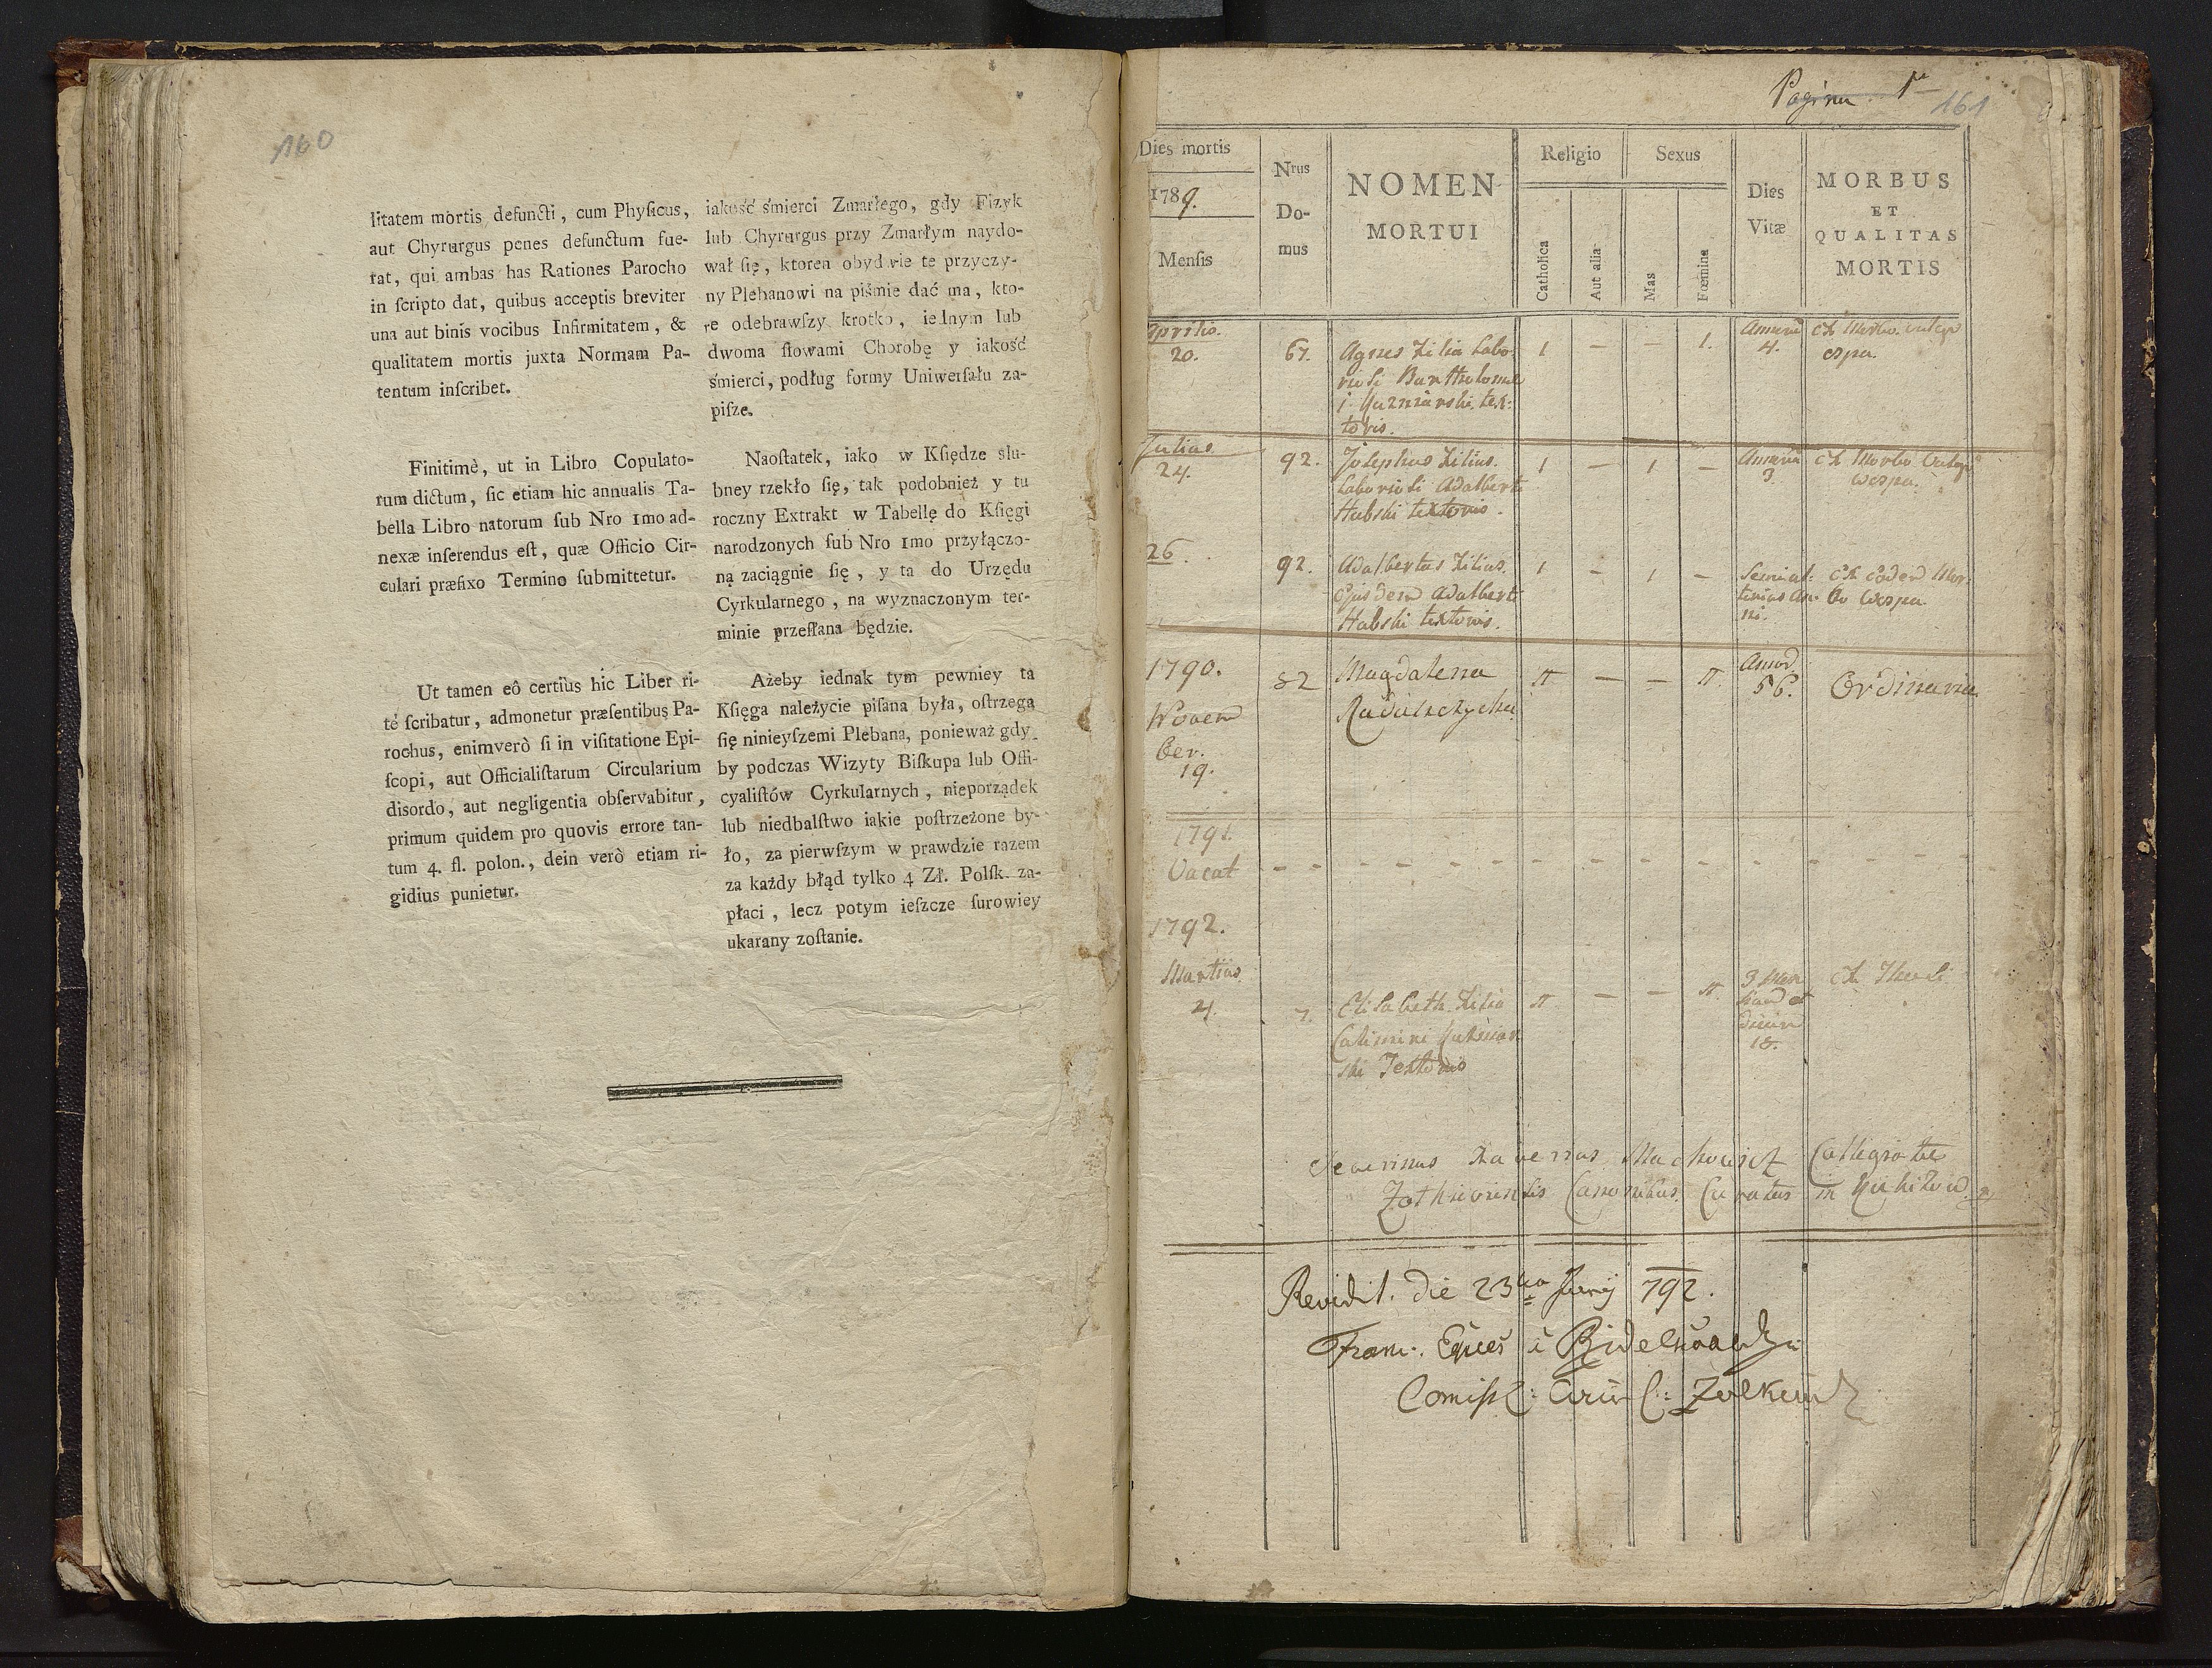 160
litatem mortis defuncti, cum Phyſicus,
aut Chyrurgus penes defunctum fue-
rat, qui ambas has Rationes Parocho
in ſcripto dat, quibus acceptis breviter
una aut binis vocibus Infirmitatem, &
qualitatem mortis juxta Normam Pa-
tentum inſcribet.
Finitimè, ut in Libro Copulato-
rum dictum, ſic etiam hic annualis Ta-
bella Libro natorum ſub Nro 1mo ad-
nexæ inſerendus eſt, quæ Officio Cir-
culari præfixo Termino ſubmittetur.
Ut tamen eô certiùs hic Liber ri-
té ſcribatur, admonetur præſentibus Pa-
rochus, enimverò ſi in viſitatione Epi-
ſcopi, aut Officialiſtarum Circularium
disordo, aut negligentia obſervabitur,
primum quidem pro quovis errore tan-
tum 4. fl. polon., dein verò etiam ri-
gidius punietur.
iakość śmierci Zmarłego, gdy Fizyk
lub Chyrurgus przy Zmarłym naydo-
wał ſię, ktoren obydwie te przyczy-
ny Plebanowi na piśmie dać ma, kto-
re odebrawſzy krotko, iednym lub
dwoma ſłowami Chorobę y iakość
śmierci, podług formy Uniwerſału za-
piſze.
Naoſtatek, iako w Kſiędze slu-
bney rzekło ſię, tak podobnież y tu
roczny Extrakt w Tabellę do Kſięgi
narodzonych ſub Nro 1mo przyłączo-
ną zaciągnie ſię, y ta do Urzędu
Cyrkularnego, na wyznaczonym ter-
minie przeſłana będzie.
Ażeby iednak tym pewniey ta
Kſięga należycie piſana była, oſtrzega
ſię ninieyſzemi Plebana, ponieważ gdy-
by podczas Wizyty Biſkupa lub Offi-
cyaliſtów Cyrkularnych, nieporządek
lub niedbalſtwo iakie poſtrzeżone by-
ło, za pierwſzym w prawdzie razem
za każdy błąd tylko 4 Zł. Polſk. za-
płaci, lecz potym ieſzcze ſurowiey
ukarany zoſtanie.
Pagina 1ma
161
Dies mortis
1789.
Menſis
Nrus
Do-
mus
NOMEN
MORTUI
Religio
Catholica
Aut alia
Sexus
Mas
Fœmina
Dies
Vitæ
MORBUS
ET
QUALITAS
MORTIS
Aprilis.
20. 67. Agnes filia Labo-
riosi Bartholomæ
i textoris.
1 — — 1.
4. ex Morbo
ospa.
Julius
24. 92. Josephus filius.
Laboriosi Adalberti
Hubski textoris.
1 — 1 —
3. ex Morbo
wospa.
26. 92. Adalbertus filius
ejusdem Adalberti
Hubski textoris.
1 — 1 —
ex eodem Mor-
bo wospa.
1790.
Novem
ber.
19.
82 Magdalena
— —
56. Ordinaria
1791.
Vacat
1792.
Martius
4. 7. Elisabeth filia
Textoris
— —
3 Men
sium et
dierum
18.
Severinus Xaverius Collegiatæ
Canonicus Curatus in
Revidit. die 23tia Junij 792.
Franc. Eques
Zolkiew